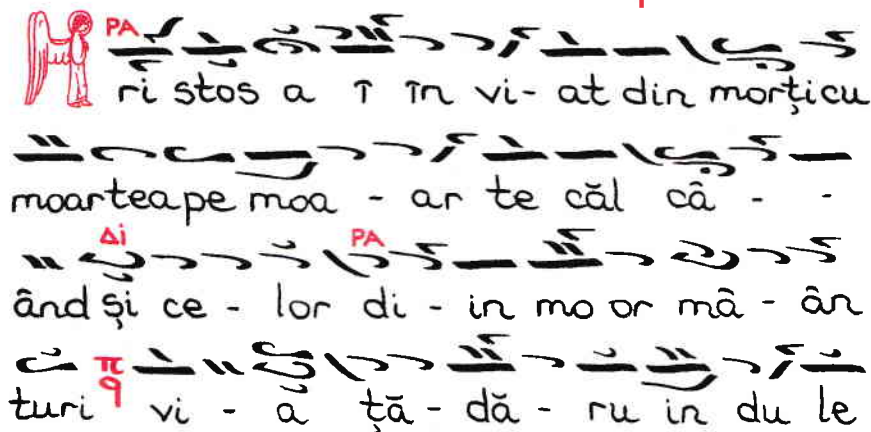 PA
ri stos a î în vi- at din morți cu
moartea pe moa - ar te căl câ - -
Δi PA
ând și ce - lor di - in mo or mâ - ân
turi π q vi - a ță - dă - ru in du le